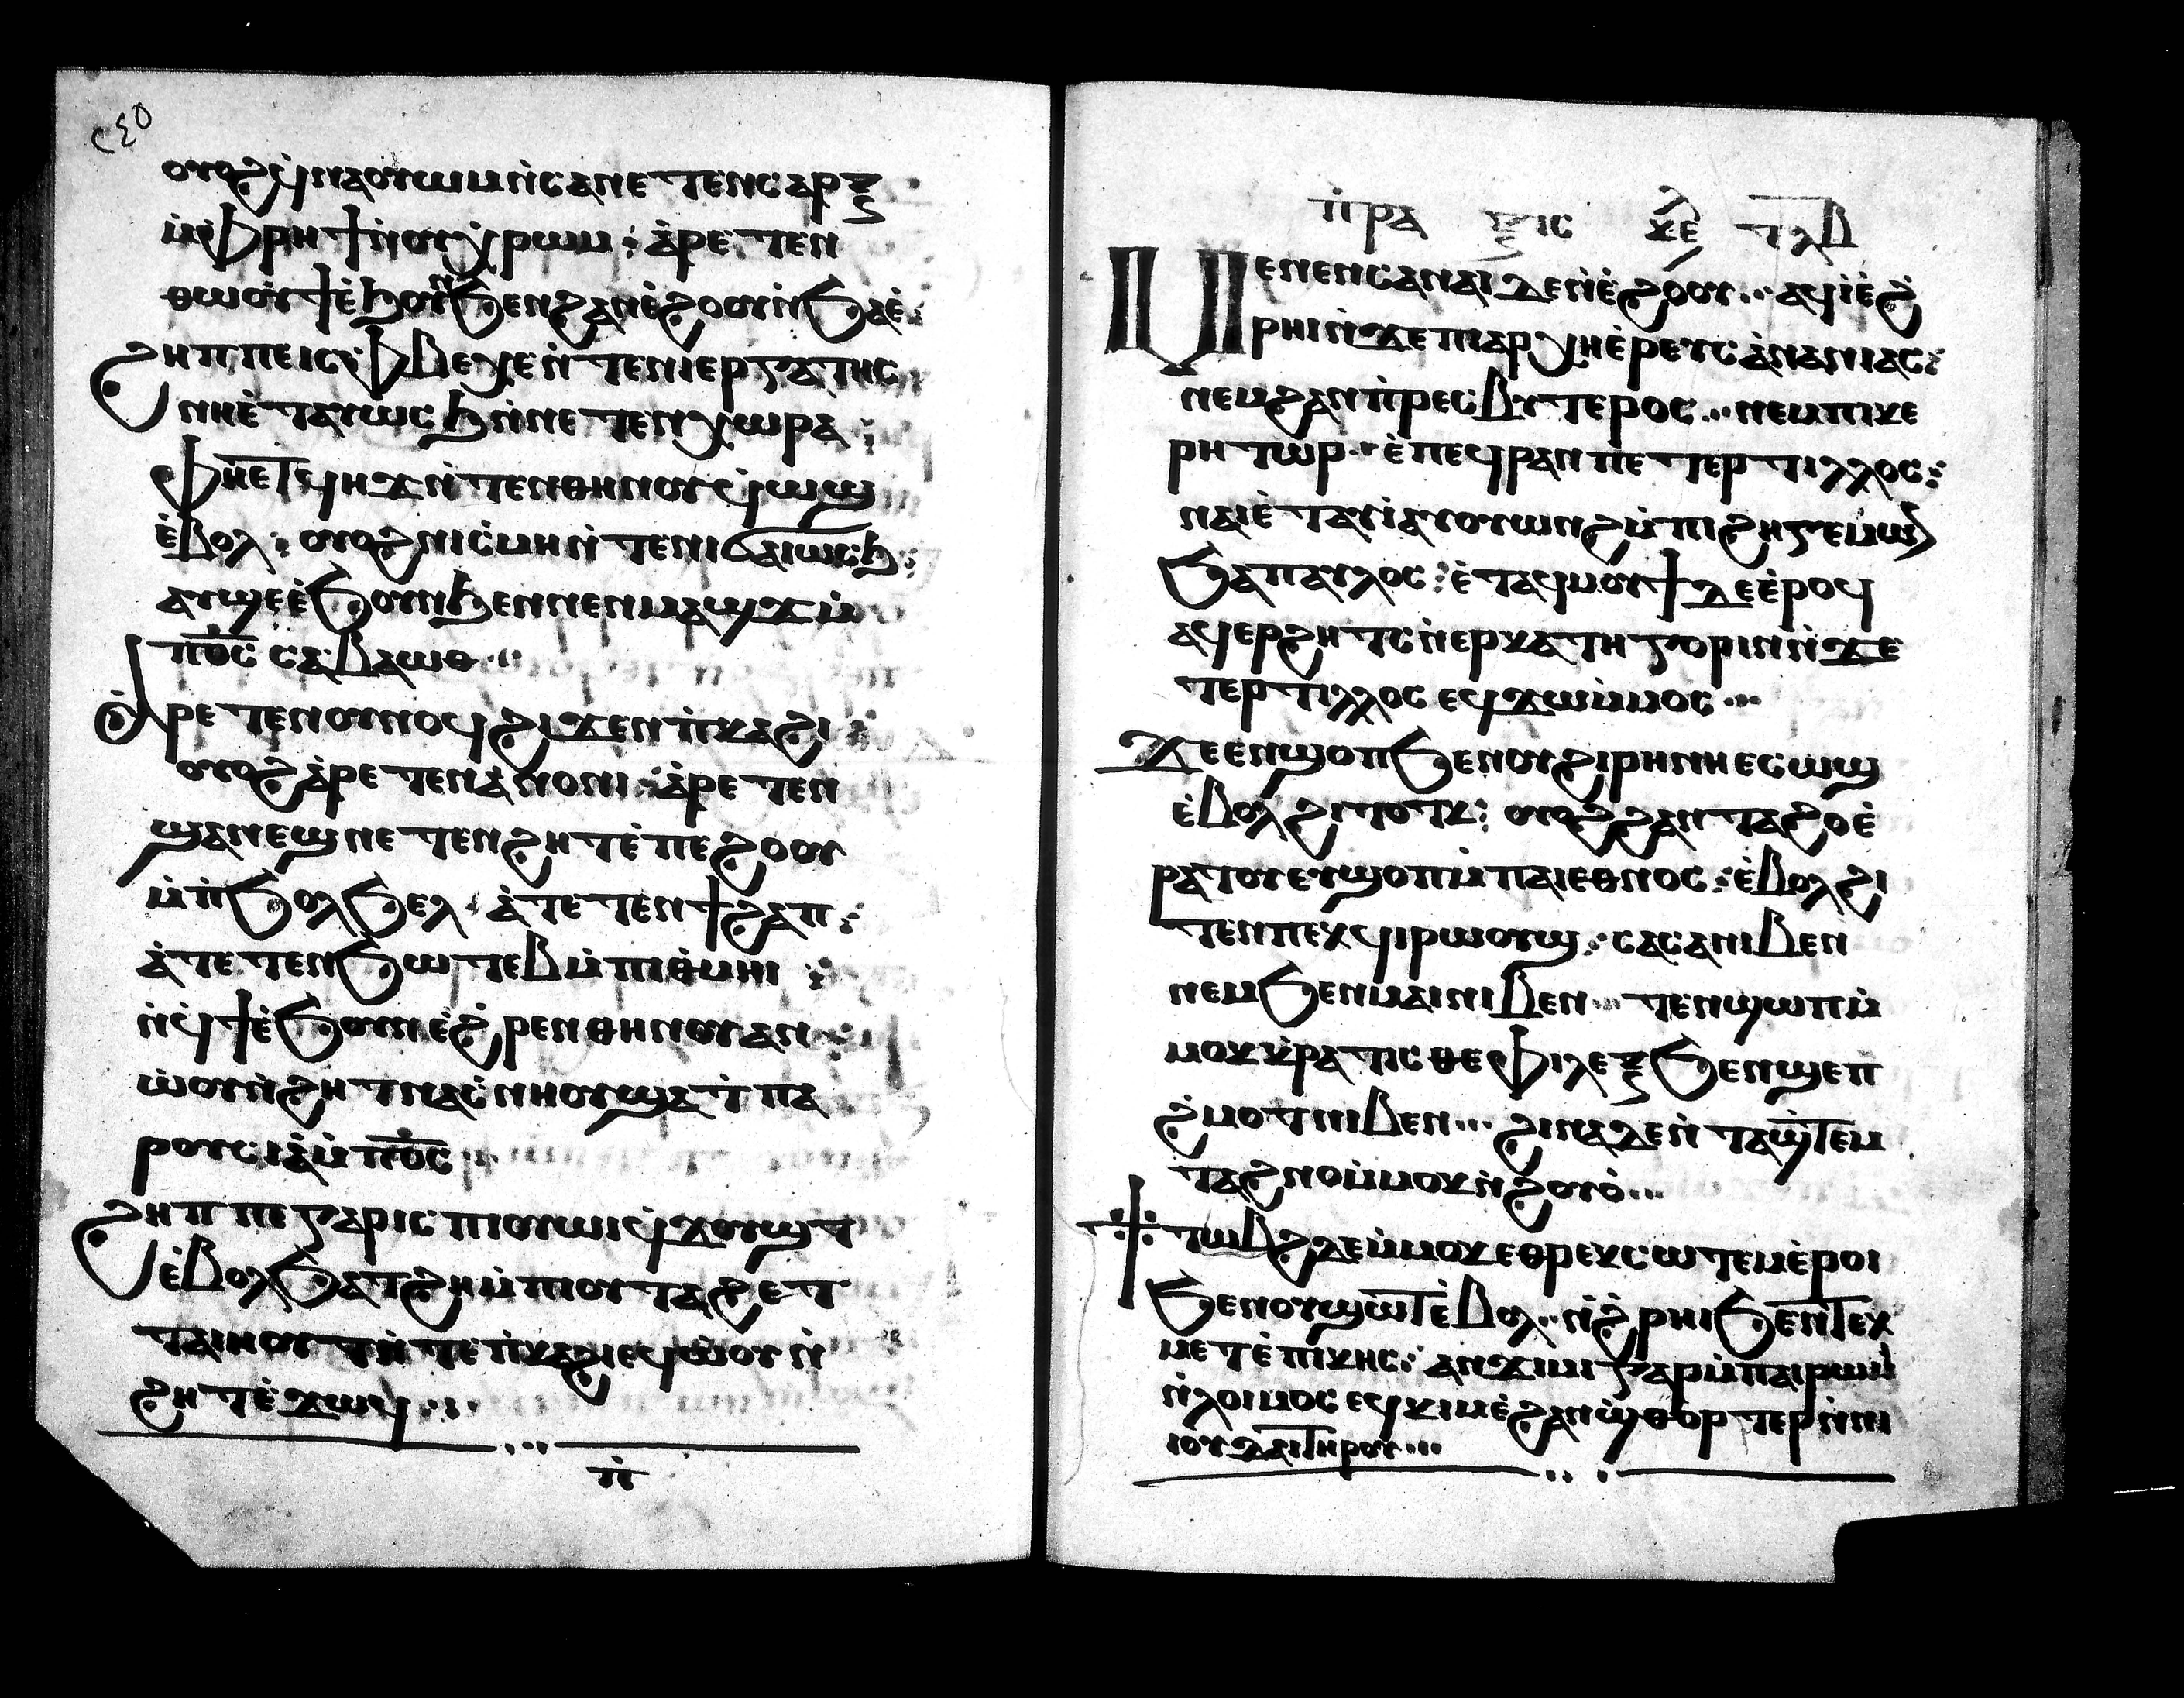 ⲟⲩⲟϩ ϥⲛⲁⲟⲩⲱⲙ ⲛ̇ⲥⲁ ⲛⲉⲧⲉⲛⲥⲁⲣⲝ
ⲙ̇ⲫⲣⲏϯ ⲛ̇ⲟⲩⲭⲣⲱⲙ : ⲁ̇ⲣⲉⲧⲉⲛ
ⲑⲱⲟⲩϯ ⲉ̇ϧⲟⲩⲛ ϧⲉⲛ ϩⲁⲛⲉ̇ϩⲟⲟⲩ ⲛ̇ϧⲁⲉ̇ :
ϩⲏⲡⲡⲉ ⲓⲥ ⲫⲃⲉⲭⲉ ⲛ̇ⲧⲉ ⲛⲓⲉⲣⲅⲁⲧⲏⲥ
ⲛⲏⲉ̇ⲧⲁⲩⲱⲥϧ ⲛ̇ⲛⲉⲧⲉⲛⲭⲱⲣⲁ :
ⲫⲏⲉⲧϥⲏϫ ⲛ̇ⲧⲉⲛ ⲑⲏⲛⲟⲩ ϥⲱϣ
ⲉ̇ⲃⲟⲗ : ⲟⲩⲟϩ ⲛⲓⲥ̇ⲙⲏ ⲛ̇ⲧⲉ ⲛⲓϭⲁⲓⲱⲥϧ :
ⲁⲩϣⲉ ⲉ̇ϧⲟⲩⲛ ϧⲉⲛ ⲛⲉⲛⲙⲁϣϫ ⲙ̇
ⲡⲟ̅ⲥ̅ ⲥⲁⲃⲁⲱⲑ ...
ⲁ̇ⲣⲉⲧⲉⲛⲟⲩⲛⲟϥ ϩⲓϫⲉⲛ ⲡ̇ⲕⲁϩⲓ :
ⲟⲩⲟϩ ⲁ̇ⲣⲉⲧⲉⲛⲁ̇ⲛⲟⲛⲓ : ⲁ̇ⲣⲉⲧⲉⲛ
ϣⲁⲛⲉϣ ⲛⲉⲧⲉⲛϩⲏⲧ ⲉ̇ⲡⲉϩⲟⲟⲩ
ⲙ̇ⲡ̇ϧⲟⲗϧⲉⲗ : ⲁ̇ⲧⲉⲧⲉⲛϯϩⲁⲡ :
ⲁ̇ⲧⲉⲧⲉⲛϧⲱⲧⲉⲃ ⲙ̇ⲡⲓⲑ̇ⲙⲏⲓ :
ⲛ̇ϥϯ ⲉ̇ϧⲟⲩⲛ ⲉ̇ϩ̇ⲣⲉⲛ ⲑⲏⲛⲟⲩ ⲁⲛ :
ⲱ̇ⲟⲩⲛ̇ϩⲏⲧ ⲛⲁⲥ̇ⲛⲏⲟⲩ ϣⲁ ⲧ̇ⲡⲁ
ⲣⲟⲩⲥⲓⲁ̇ ⲙ̇ⲡⲟ̅ⲥ̅ ..
ϩⲏⲡⲡⲉ ⲅⲁⲣ ⲓⲥ ⲡⲓⲟⲩⲱⲓ ϥϫⲟⲩϣⲧ
ⲉ̇ⲃⲟⲗ ϧⲁⲧϩⲏ ⲙ̇ⲡⲓⲟⲩⲧⲁϩ ⲉⲧ
ⲧⲁⲓⲏⲟⲩⲧ ⲛ̇ⲧⲉ ⲡ̇ⲕⲁϩⲓ ⲉϥⲱ̇ⲟⲩ ⲛ̇
ϩⲏⲧ ⲉ̇ϫⲱϥ ...
ⲡ̇
ⲡ̇ⲣⲁⲝⲓⲥ ⲕⲉ ⲧⲗⲃ
ⲙⲉⲛⲉⲛⲥⲁ ⲛⲁⲓ ⲇⲉ ⲛ̇ⲉ̇ϩⲟⲟⲩ ... ⲁϥⲓ̇ ⲉ̇ϩ̇
ⲣⲏⲓ ⲛ̇ϫⲉ ⲡⲓⲁⲣⲭⲏⲉ̇ⲣⲉⲩⲥ ⲁ̇ⲛⲁⲛⲓⲁⲥ :
ⲛⲉⲙ ϩⲁⲛⲡ̇ⲣⲉⲥⲃⲩⲧⲉⲣⲟⲥ ... ⲛⲉⲙ ⲡⲓⲕⲉ
ⲣⲏⲧⲱⲣ .. ⲉ̇ⲡⲉϥⲣⲁⲛ ⲡⲉ ⲧⲉⲣⲧⲓⲗⲗⲟⲥ :
ⲛⲁⲓ ⲉ̇ⲧⲁⲩⲓ̇ ⲁⲩⲟⲩⲱⲛϩ ⲙ̇ⲡⲓϩⲏⲅⲉⲙⲱⲛ
ϧⲁ ⲡⲁⲩⲗⲟⲥ : ⲉ̇ⲧⲁϥⲙⲟⲩϯ ⲇⲉ ⲉ̇ⲣⲟϥ
ⲁϥⲉⲣϩⲏⲧⲥ ⲛ̇ⲉⲣⲕⲁⲧⲏⲅⲟⲣⲓⲛ ⲛ̇ϫⲉ
ⲧⲉⲣⲧⲓⲗⲗⲟⲥ ⲉϥϫⲱ ⲙ̇ⲙⲟⲥ ...
ϫⲉ ⲉⲛϣⲟⲡ ϧⲉⲛ ⲟⲩϩⲓⲣⲏⲛⲏ ⲉⲥⲱϣ
ⲉ̇ⲃⲟⲗ ϩⲓⲧⲟⲧⲕ : ⲟⲩⲟϩ ϩⲁⲛⲧⲁϩⲟ ⲉ̇
ⲣⲁⲧⲟⲩ ⲉⲩϣⲟⲡ ⲙ̇ⲡⲁⲓⲉⲑⲛⲟⲥ : ⲉ̇ⲃⲟⲗ ϩⲓ
ⲧⲉⲛ ⲡⲉⲕϥⲓⲣⲱⲟⲩϣ : ⲥⲁⲥⲁ ⲛⲓⲃⲉⲛ
ⲛⲉⲙ ϧⲉⲛ ⲙⲁⲓ ⲛⲓⲃⲉⲛ ... ⲧⲉⲛϣⲱⲡ ⲙ̇
ⲙⲟⲕ ⲕ̇ⲣⲁⲧⲓⲥⲑⲉ ⲫⲓⲗⲉⲝ ϧⲉⲛ ϣⲉⲡ
ϩ̇ⲙⲟⲧ ⲛⲓⲃⲉⲛ ... ϩⲓⲛⲁ ⲇⲉ ⲛ̇ⲧⲁϣ̇ⲧⲉⲙ
ⲧⲁϩⲛⲟ ⲙ̇ⲙⲟⲕ ⲛ̇ϩⲟⲩⲟ̇ ...
ϯⲧⲱⲃϩ ⲇⲉ ⲙ̇ⲙⲟⲕ ⲉⲑⲣⲉⲕⲥⲱⲧⲉⲙ ⲉ̇ⲣⲟⲓ
ϧⲉⲛ ⲟⲩϣⲱⲧ ⲉ̇ⲃⲟⲗ .. ⲛ̇ϩ̇ⲣⲏⲓ ϧⲉⲛ ⲧⲉⲕ
ⲙⲉⲧⲉ̇ⲡⲓⲕⲏⲥ : ⲁⲛϫⲓⲙⲓ ⲅⲁⲣ ⲙ̇ⲡⲁⲓⲣⲱⲙⲓ
ⲛ̇ⲗⲟⲓⲙⲟⲥ ⲉϥⲕⲓⲙ ⲉ̇ϩⲁⲛϣ̇ⲑⲟⲣⲧⲉⲣ ⲛ̇ⲛⲓ
ⲓⲟⲩⲇⲁⲓ ⲧⲏⲣⲟⲩ ...